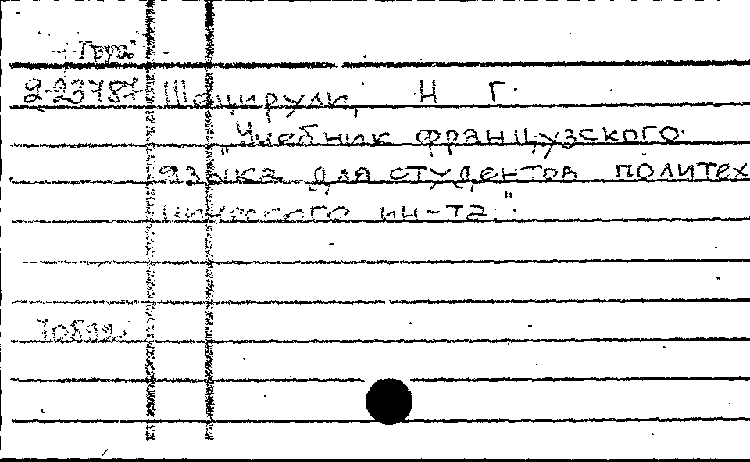 Груз
2-23787 Шацирули, Н Г.
"Учебник французского
языка для студентов политех
нического ин-та".